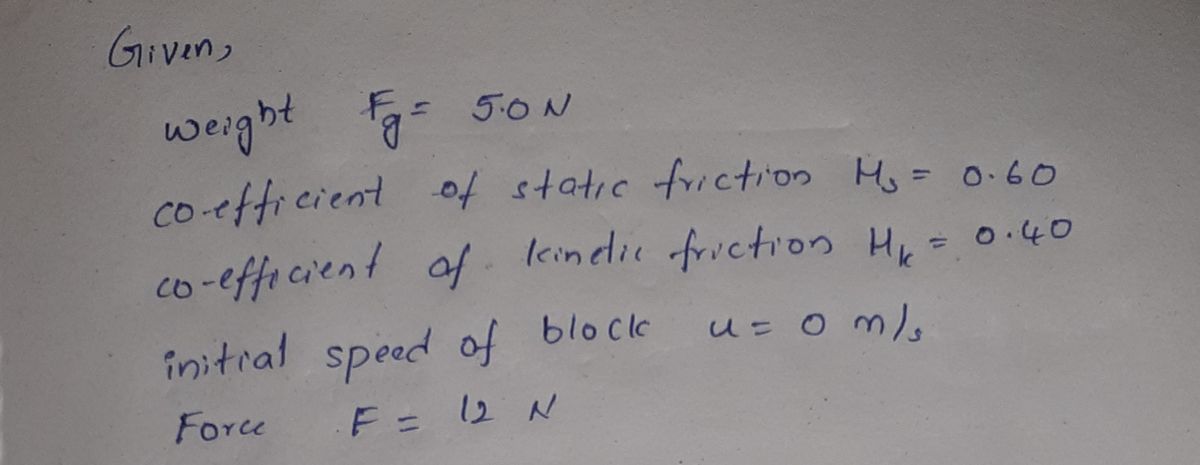 Given,
weight Fg = 5.0 N
co-efficient of static friction μs = 0.60
co-efficient of kinetic friction μk = 0.40
initial speed of block u = 0 m/s
Force F = 12 N